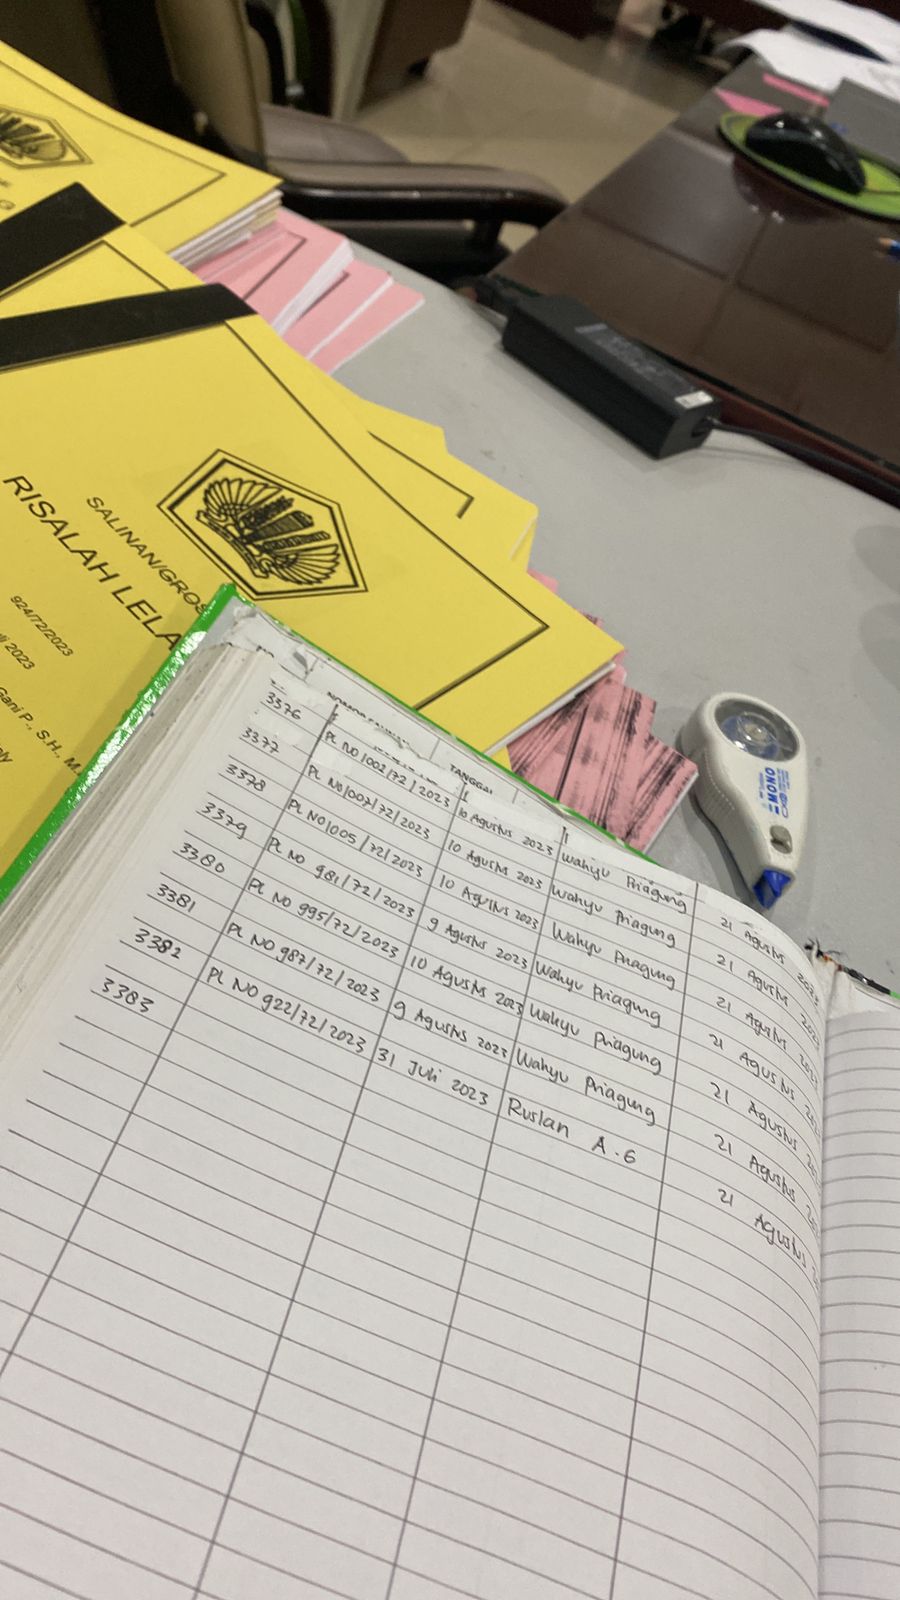 SALINAN/GROS
RISALAH LELA
924/72/2023
2023
Gani P., S.H., M.
NOMOR
TANGGAL
3376
PL NO 1002/72/2023
10 Agustus 2023
Wahyu Priagung
21 Agustus 2023
3377
PL NO 1007/72/2023
10 Agustus 2023
Wahyu Priagung
21 Agustus 2023
3378
PL NO 1005/72/2023
10 Agustus 2023
Wahyu Priagung
21 Agustus 202
3379
PL NO 981/72/2023
9 Agustus 2023
Wahyu Priagung
21 Agustus 20
3380
PL NO 995/72/2023
10 Agustus 2023
Wahyu Priagung
21 Agustus 20
3381
PL NO 987/72/2023
9 Agustus 2023
Wahyu Priagung
21 Agustus 20
3382
PL NO 922/72/2023
31 Juli 2023
Ruslan A.G
21 Agustus 2
3383
MONO